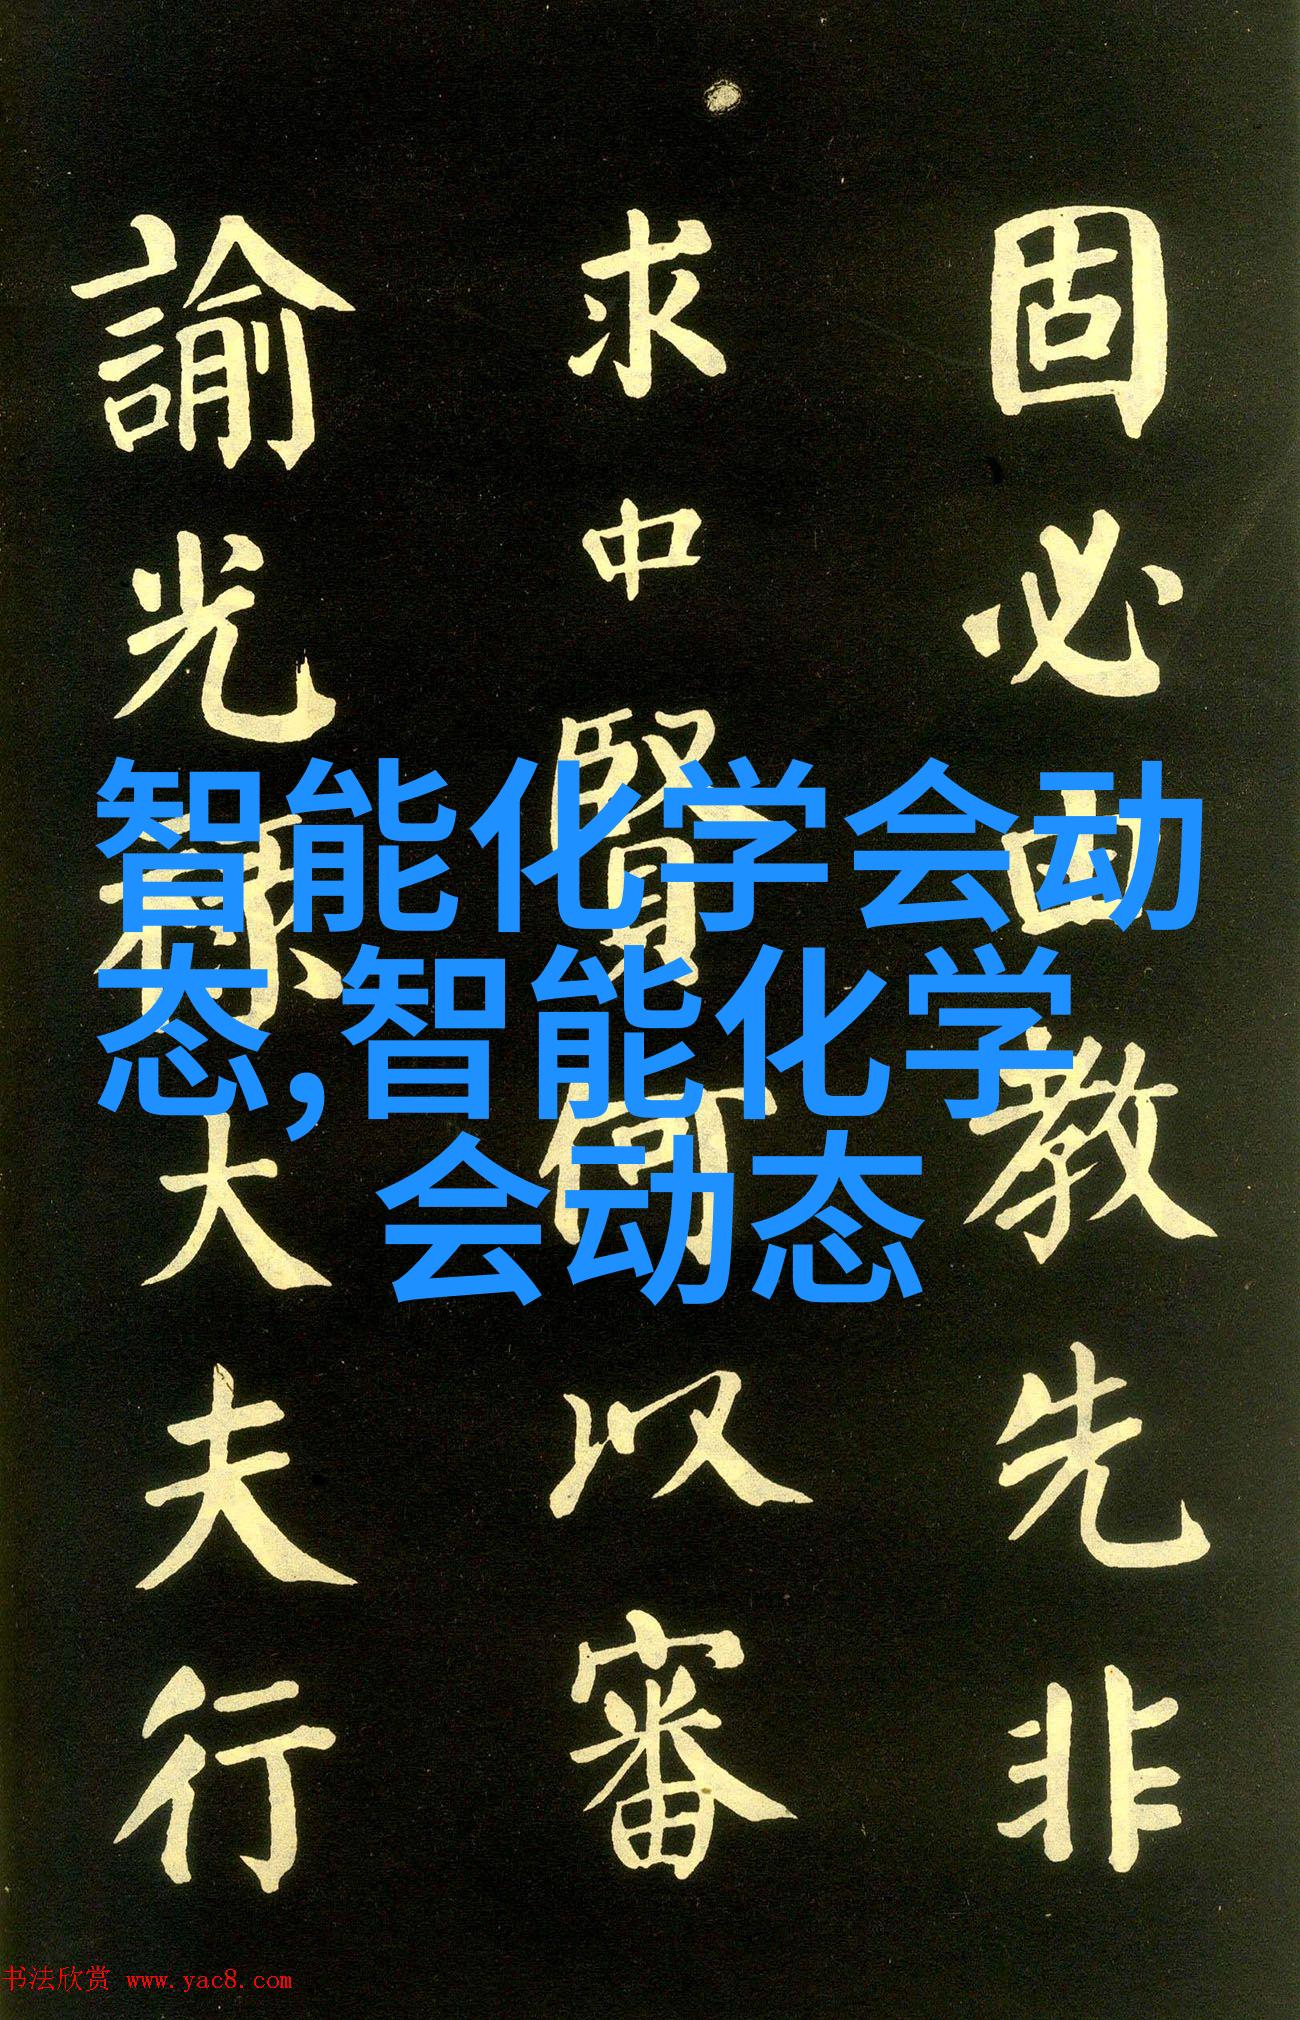 固必由教先非
求中賢何以審
諭光禄大夫行
智能化学会动
态,智能化学
会动态
书法欣赏 www.yac8.com